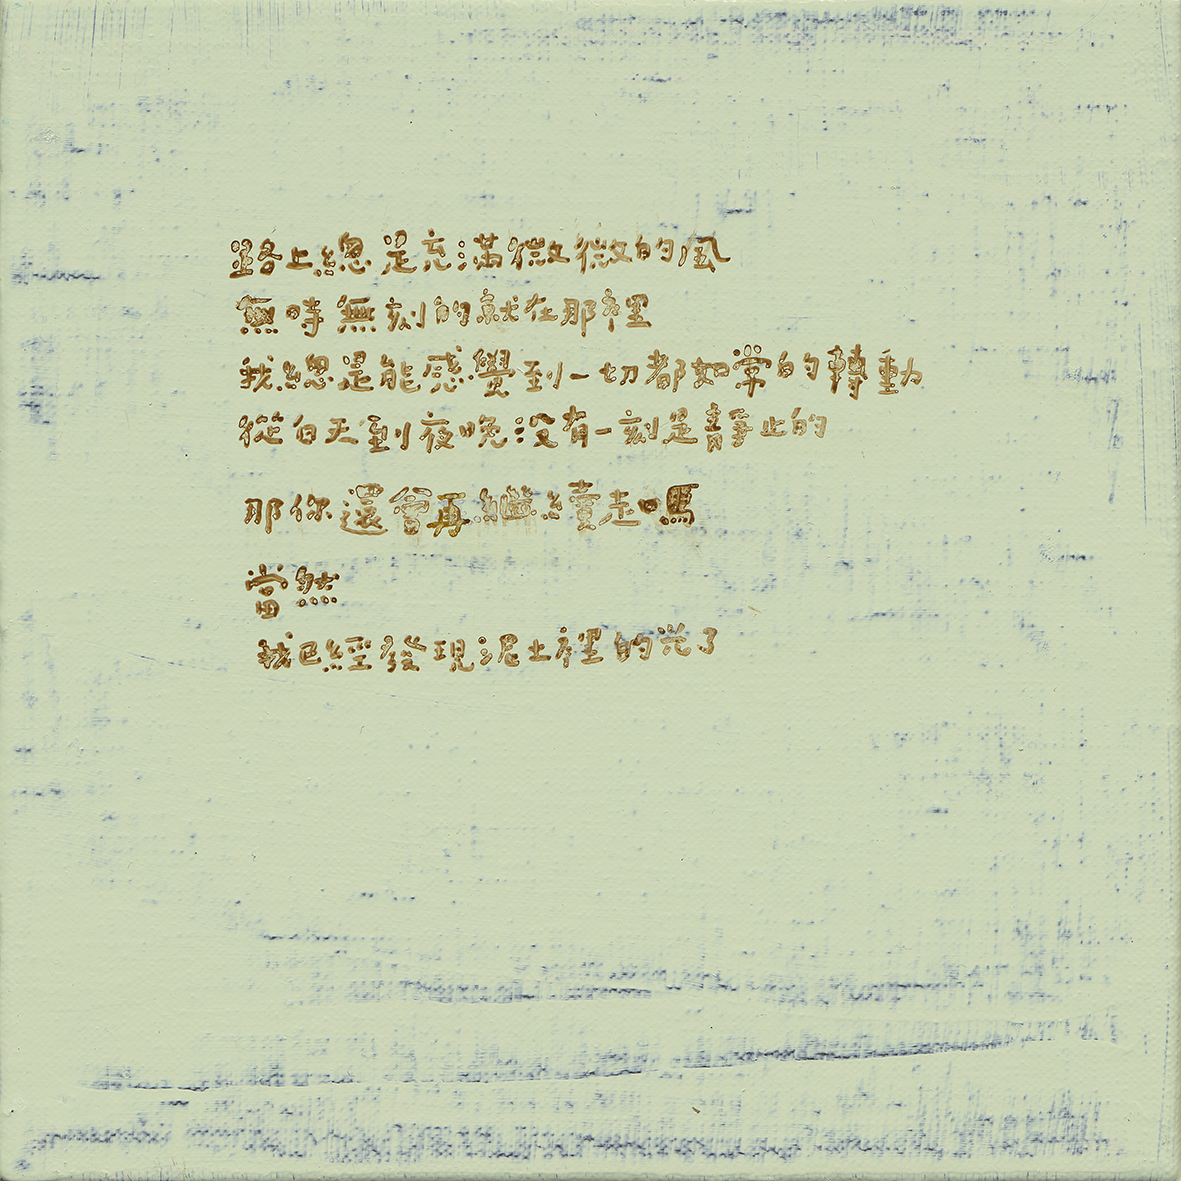 路上總是充滿微微的風
無時無刻的就在那裡
我總是能感覺到一切都如常的轉動
從白天到夜晚沒有一刻是靜止的
那你還會再繼續走嗎
當然
我已經發現泥土裡的光了